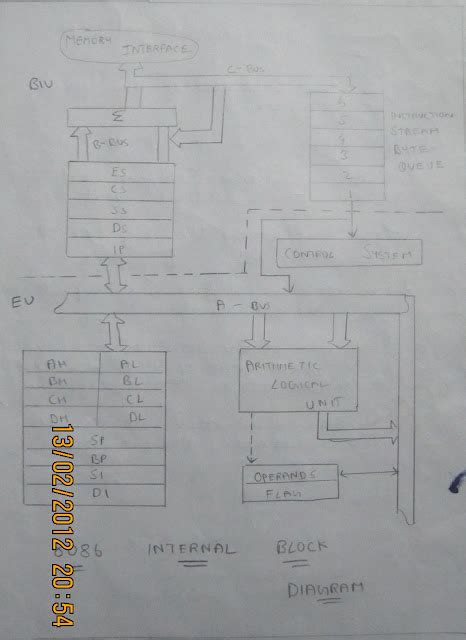 MEMORY
INTERFACE
C-BUS
BIU
Σ
B-BUS
ES
CS
SS
DS
IP
6
5
4
3
2
STREAM
BYTE
QUEUE
CONTROL SYSTEM
EU
A - BUS
AH AL
BH BL
CH CL
DH DL
SP
BP
SI
DI
ARITHMETIC
LOGICAL
UNIT
OPERANDS
FLAG
8086 INTERNAL BLOCK
DIAGRAM
13/02/2012 20:54